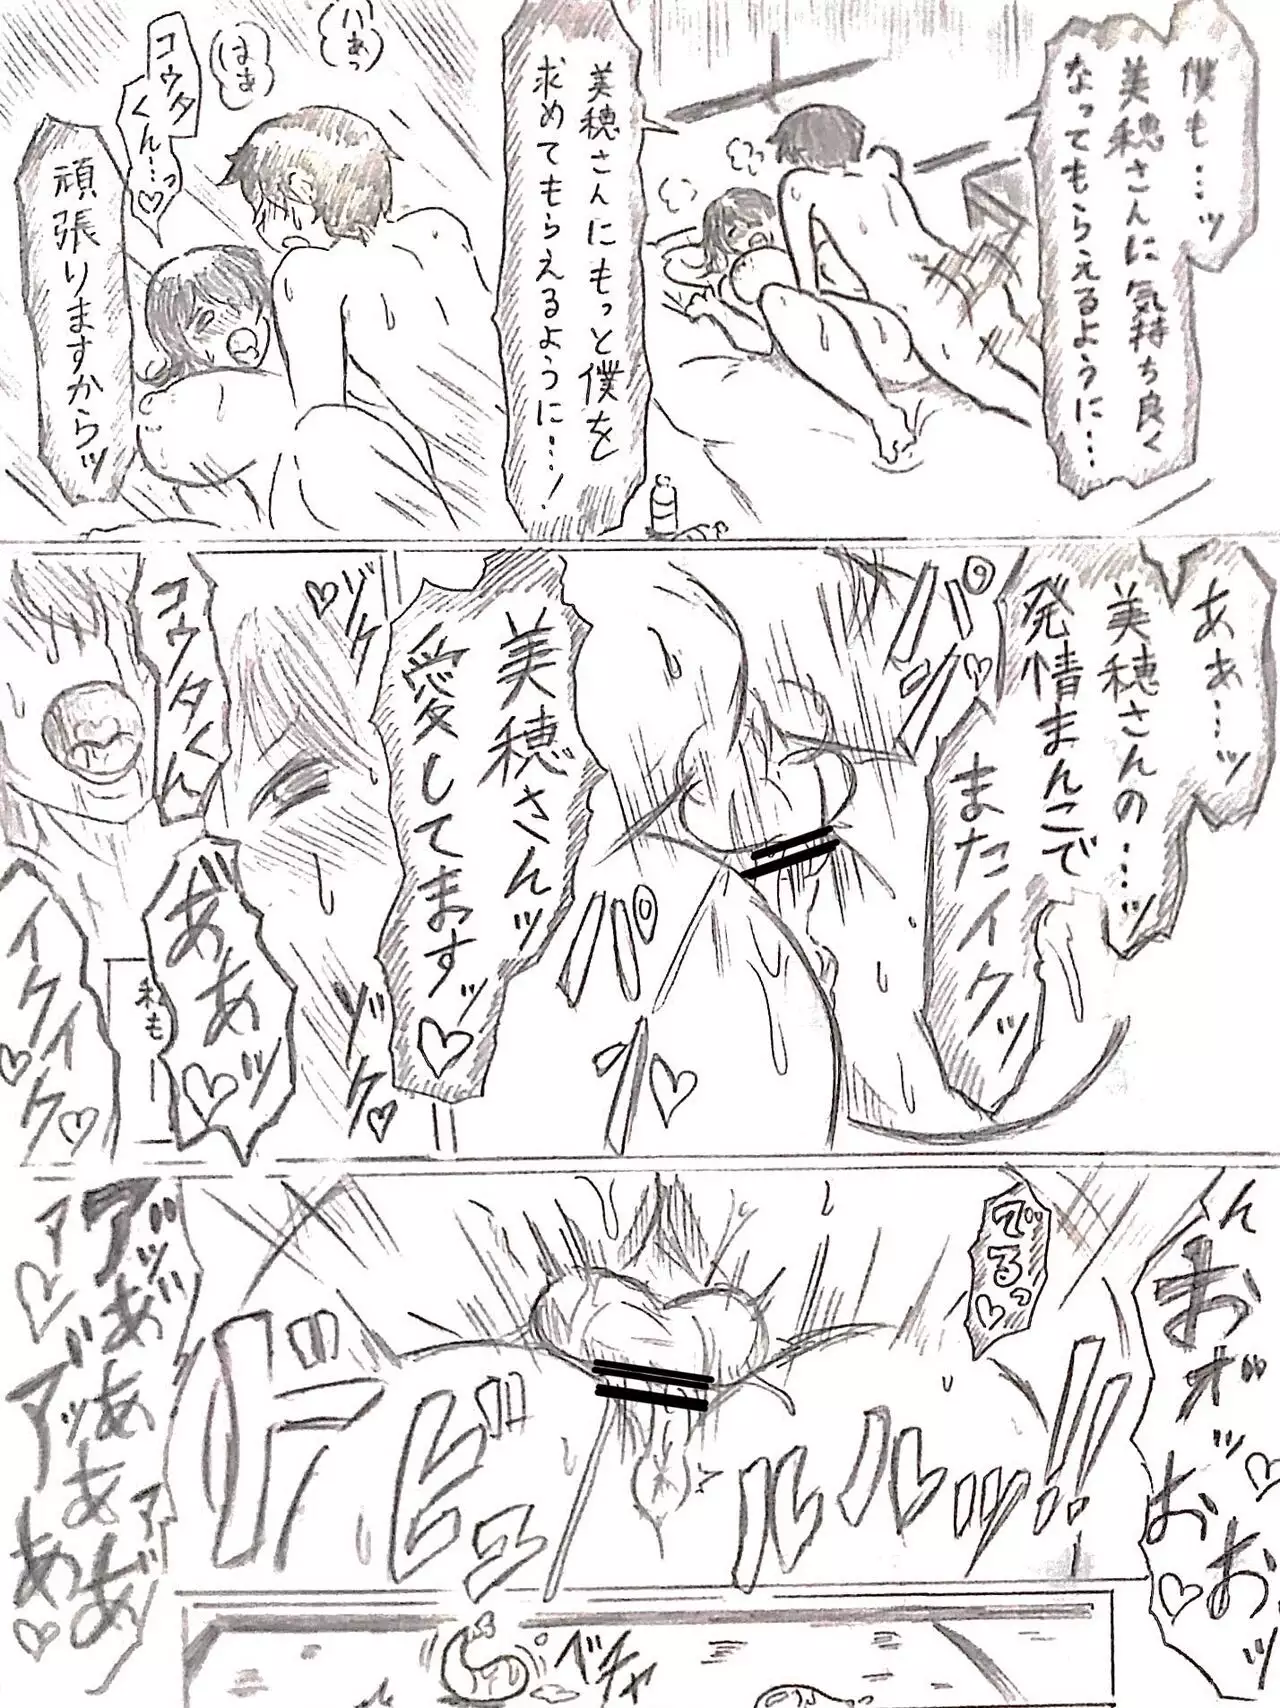 僕も…ッ
美穂さんに気持ち良く
なってもらえるように…
美穂さんにもっと僕を
求めてもらえるように…!
はぁっ
はぁ
コウタ
くん…っ♡
頑張りますからッ
あぁ…ッ
美穂さんの…ッ
発情まんこで
またイクッ
パン♡
パン♡
美穂さんッ
愛してますッ♡
ゾク♡
ゾク♡
コウタくん
ああッ♡
私も—
イクイク♡
でるっ♡
ドビュルルルッ!!
ベチャ